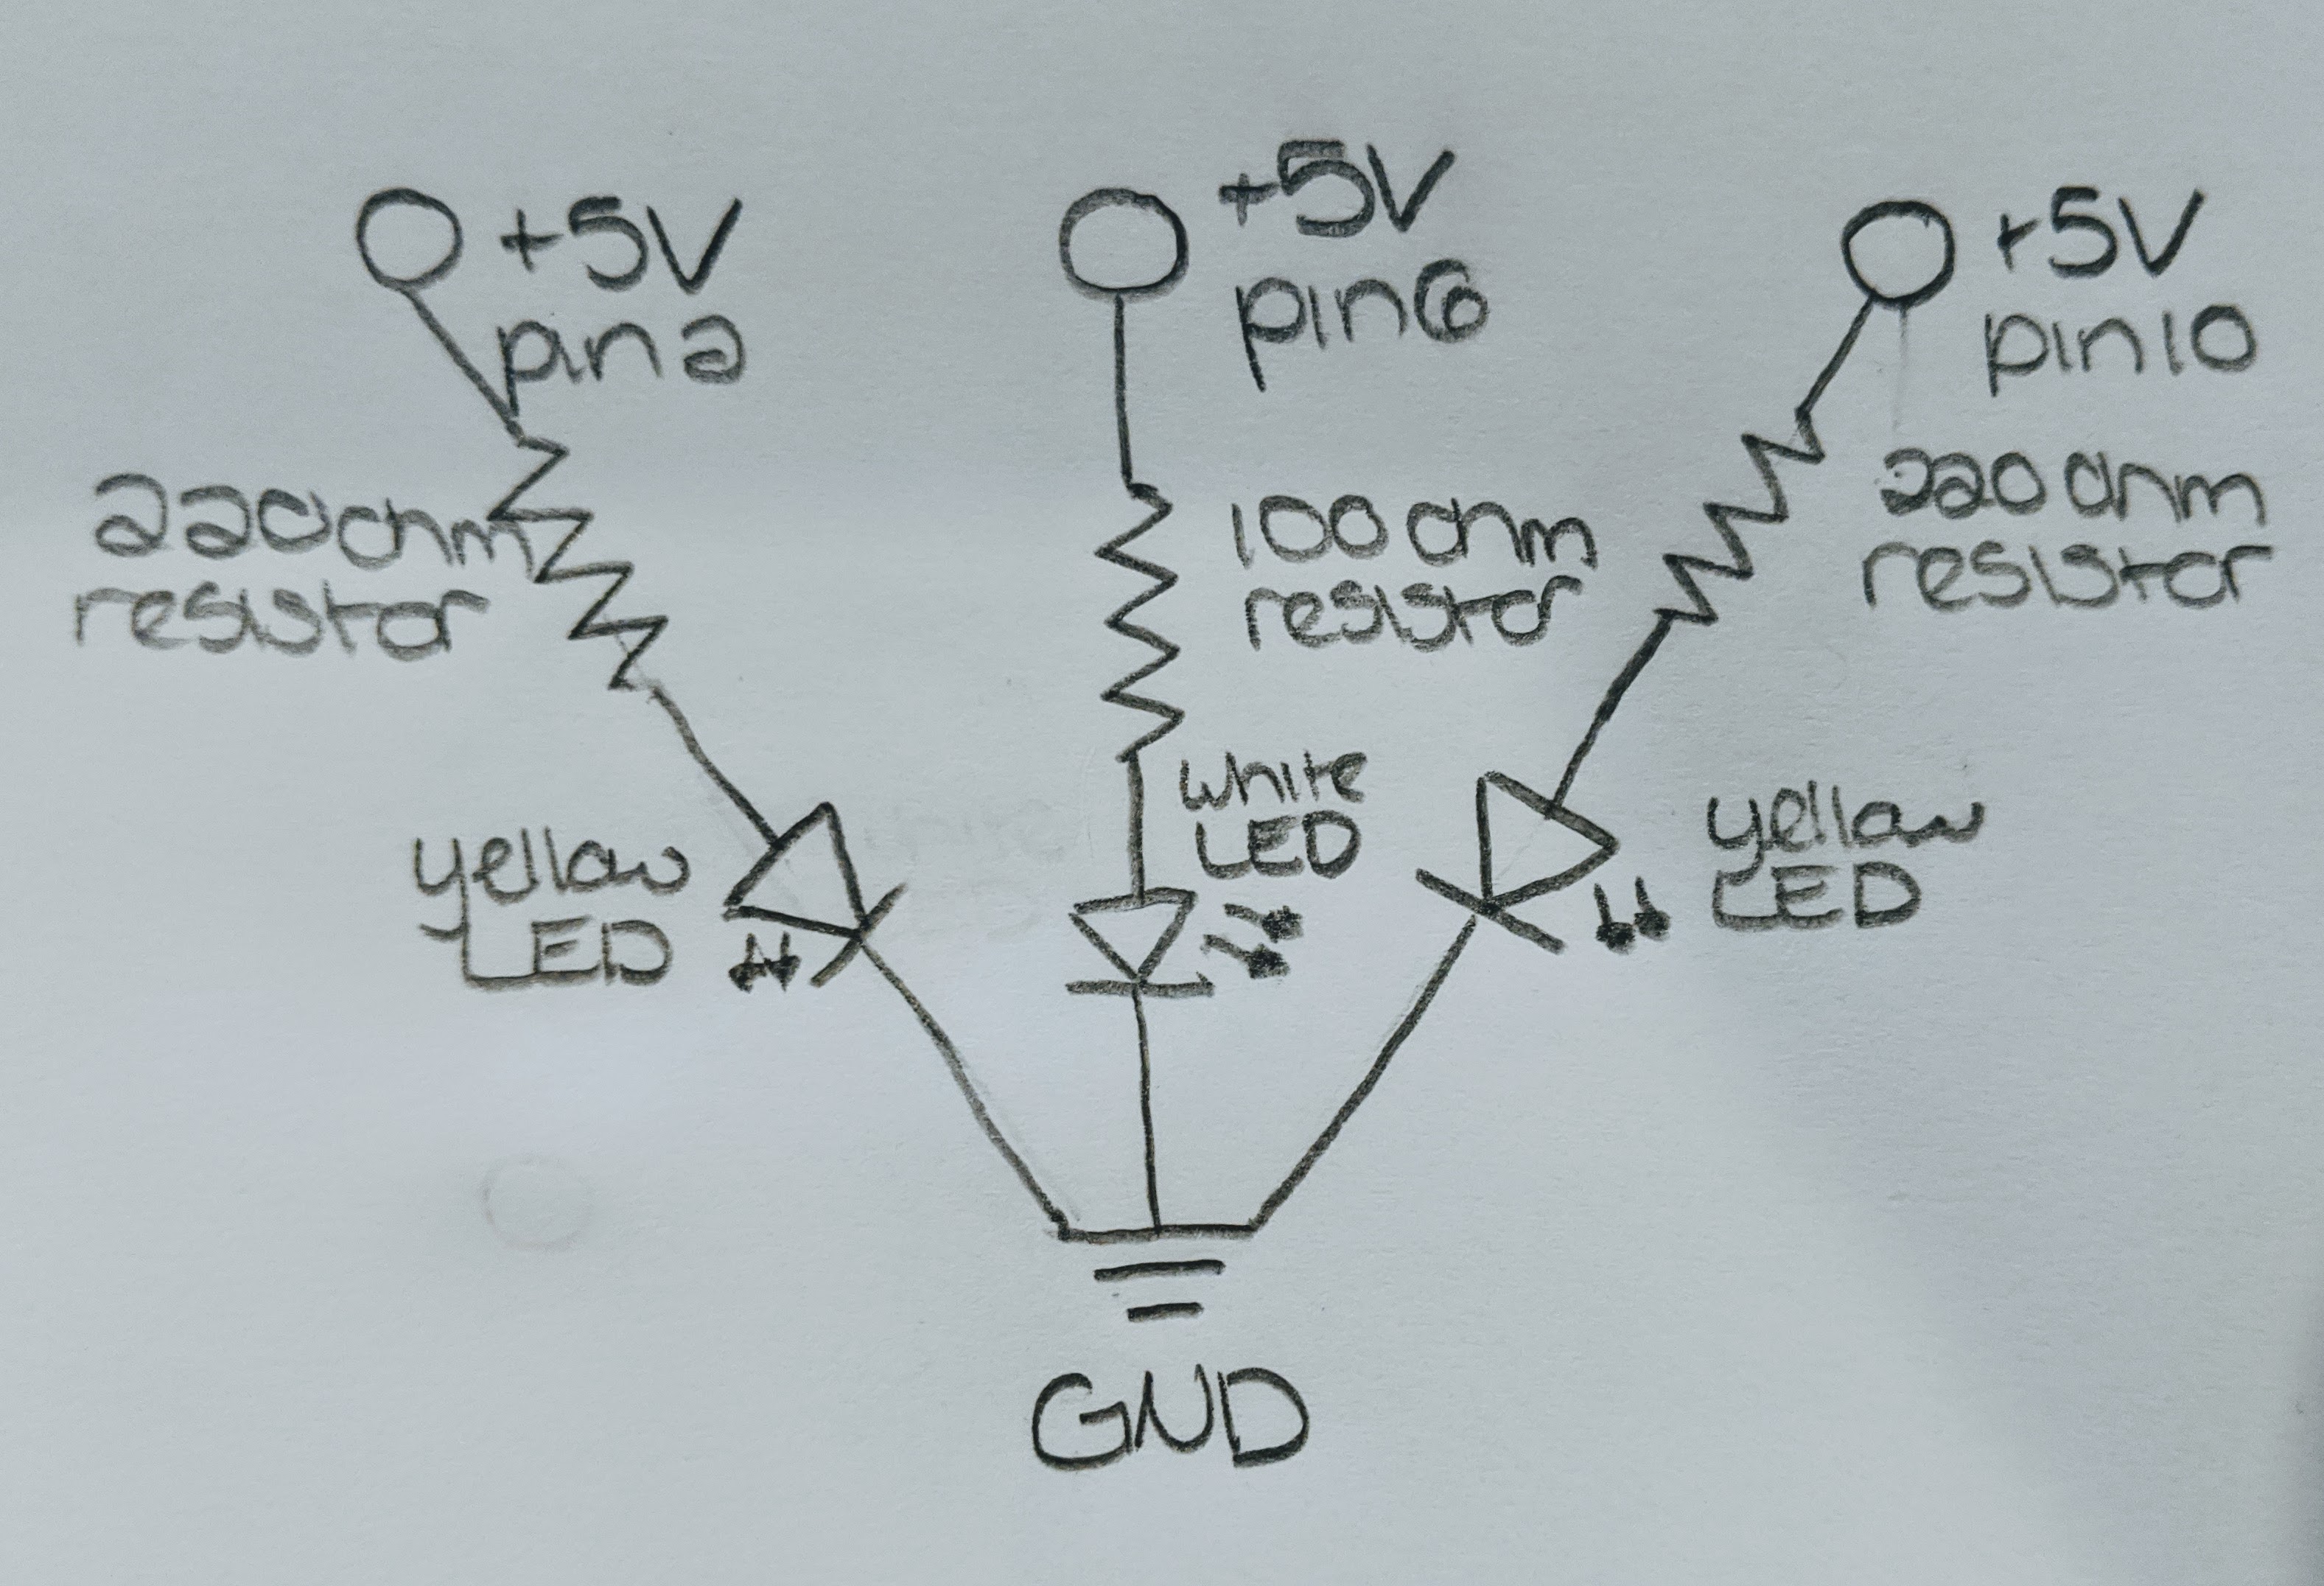 +5V
pin 2
220 ohm
resistor
yellow
LED
+5V
pin 6
100 ohm
resistor
white
LED
+5V
pin 10
220 ohm
resistor
yellow
LED
GND